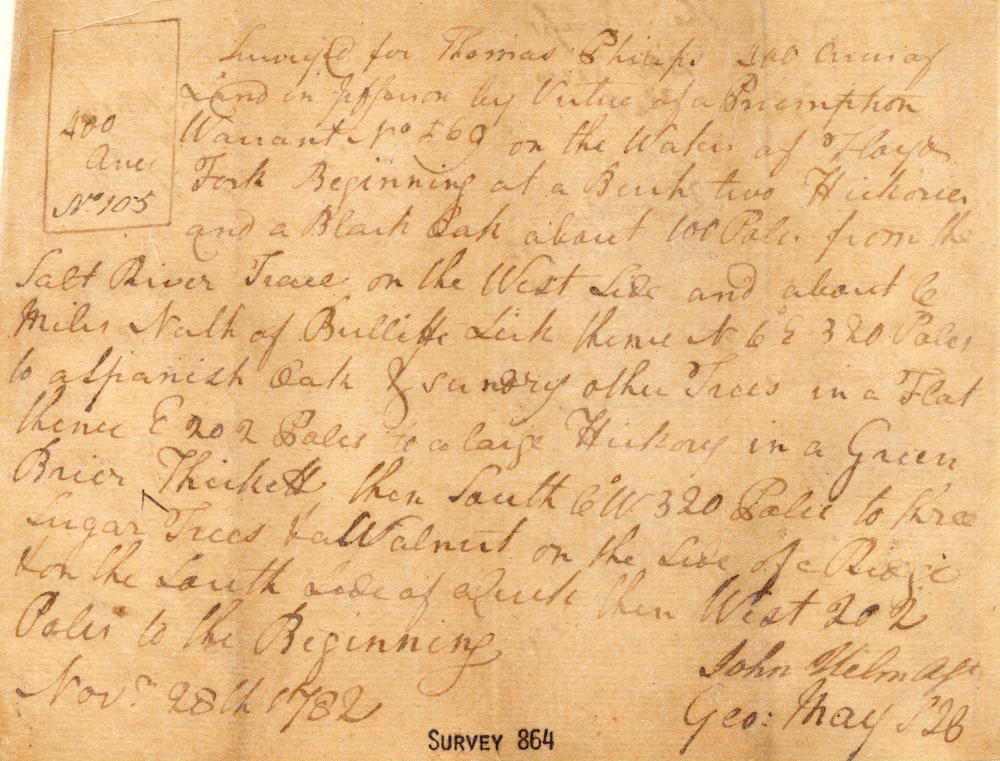 400
Acres
No 105
Survey'd for Thomas Philips 400 Acres of
Land in Jefferson by Virtue of a Preemption
Warrant No on the Waters of Floyds
Fork Beginning at a Beech two Hickories
and a Black Oak about 100 Poles from the
Salt River Trace on the West Side and about 6
Miles North of Bullitts Lick thence N 6° E 320 Poles
to a Spanish Oak & sundry other Trees in a Flat
thence E 202 Poles to a large Hickory in a Green
Brier Thickett then South 6° W. 320 Poles to three
Sugar Trees & a Walnut on the Side of a Ridge
& on the South Side of a then West 202
Poles to the Beginning
John Helm Asst
Novr. 28th 1782
Geo: May
SURVEY 864